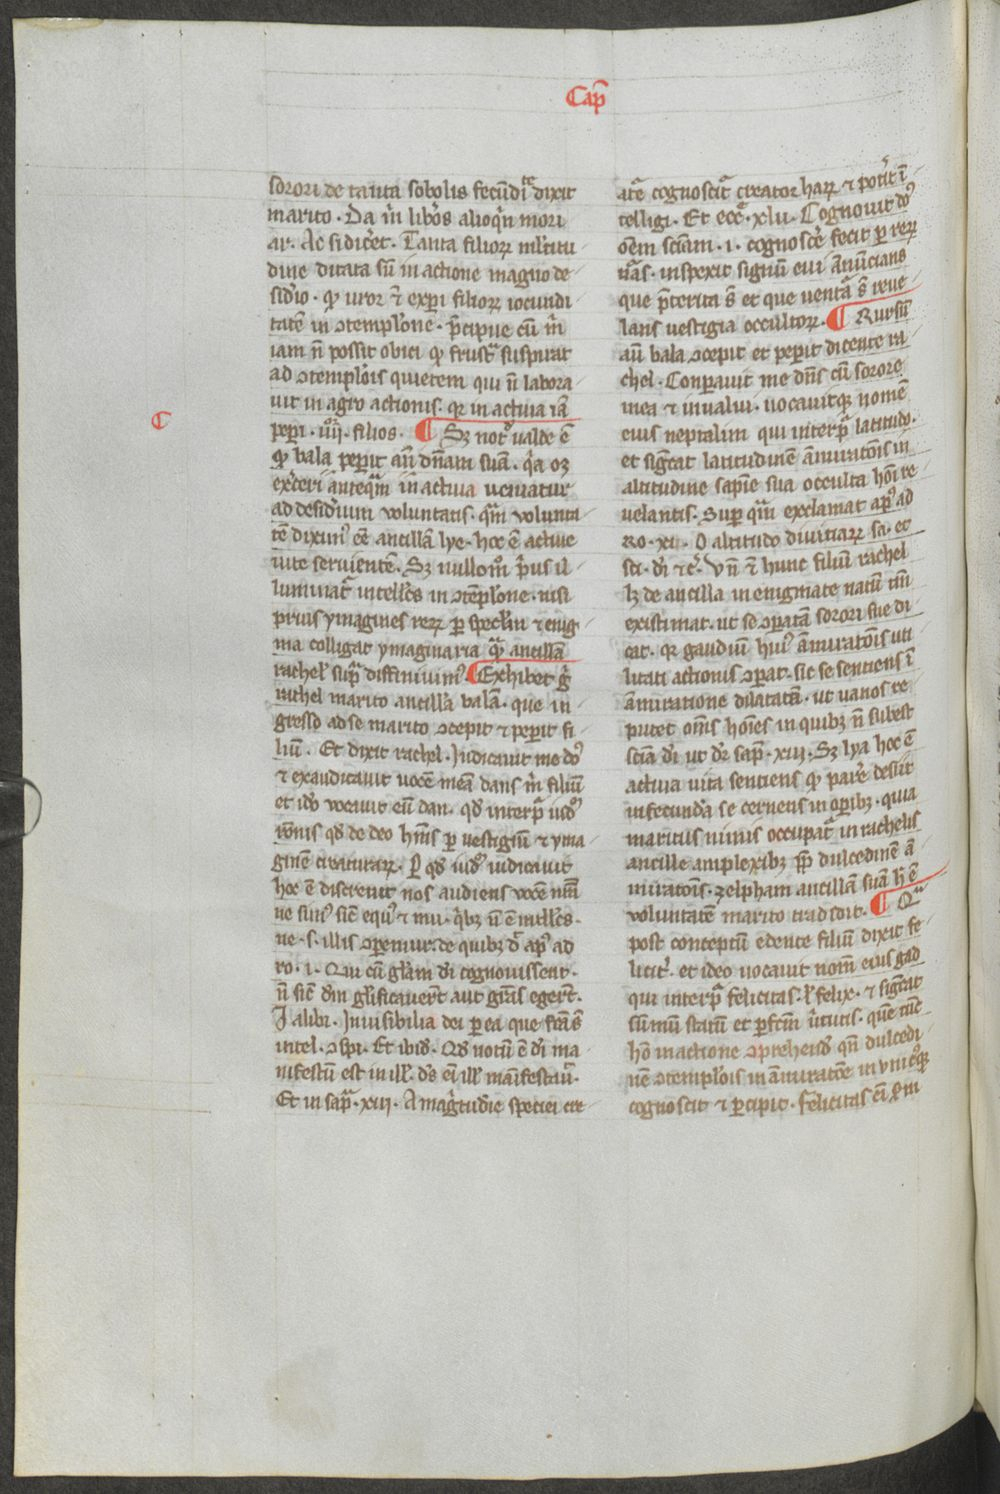 Cap̄
sorori de tanta sobolis fecūdit̄te dixit
marito · Da m̄ lib̾os alioq̄n mori
ar · Ac si dic̾et · Tanta filioꝝ ml̾titu
dine ditata sū in actione magno de
sid̾io · ꝙ uror ⁊ exp̱i filioꝝ iocundi
tatē in ꝯtemplōne · p̄cipue cū m̄
iam n̄ possit obici ꝙ frust̾ suspirat
ad ꝯtemplōis quietem qui n̄ labora
uit in agro actionis · q̾ in actiua iā
C
pep̱i · iiij · filios · ¶ Sꝫ notᵒ ualde ē
ꝙ bala pep̱it an̄ dn̄am suā · q̾a oꝫ
ex̾ceri anteq̄m in actiua ueniatur
ad desid̾ium voluntatis · q̄m volunta
tē dixim᷒ ēē ancillā lye · hoc ē actiue
uite seruientē · Sꝫ nullomᵒ p̾us il
luminat̾ intell̾us in ꝯtēplōne · nisi
prius ymagines reꝝ p̱ specl̄m ⁊ enig
ma colligat ymaginaria q̄m ancillā
rachel̾ sup̾ diffiniuim᷒ · ¶ Exhibet g̾
rachel marito ancillā balā · que in
gresso ad se marito ꝯcepit ⁊ pep̱it fi
liū · Et dixit rachel · Iudicauit me dn̄s
⁊ exaudiuit uocē meā dans m̄ filiū
et id̾o vocauit eū dan · qd̾ interp̾ iud᷒
rōnis qd̾ de deo hēm̄s p̱ vestigiū ⁊ yma
ginē creaturaꝝ · P̱ qd̾ iud᷒ iudicauit
hoc ē discreuit nos audiens vocē nr̄m
ne sim᷒ sic̄ equ᷒ ⁊ mu · q̾bꝫ n̄ ē intll̾cs ·
ne · s · illis ꝯparemur · de quibꝫ d̾ ap᷒ ad
ro · i · Qui cū gl̄am di cognouissent ·
n̄ sic̄ dm̄ gl̾ificauer̄t aut gr̄as eger̄t ·
I alibi · Inuisibilia dei p̱ ea que fc̄a s̄
intel · ꝯspi · Et ibid̾ · Qd̾ notū ē di ma
nifestū est in ill̾ · d̾s eī ill̾ manifestau̾ ·
Et in sap̾ · xiij · A mag̾tudīe speciei cre
at̾e cognoscit̾ creator haꝝ ⁊ pot̾it ī
telligi · Et ecc̾ · xlii · Cognouit dn̄s
oēm sciam · i · cognosc̾e fecit p̱ reꝝ
n̄as · inspexit signū eui ānūcians
que p̄terita s̄ et que ventā s̄ reue
lans vestigia occultoꝝ · ¶ Rursū
aū bala ꝯcepit et pep̱it dicente ra
chel · Conp̱auit me dn̄s cū sorore
mea ⁊ inualui · uocauitqꝫ nomē
eius neptalim qui interp̾ latitudo ·
et sig̾cat latitudinē āmiratōnis in
altitudine sapīe sua occulta hōi re
uelantis · Sup̱ q̄m exclamat ap᷒ ad
Ro · xi · O altitudo diuitiaꝝ sa · et
sci · di ⁊c̾ · vn̄ ⁊ hunc filiū rachel
lꝫ de ancilla in enigmate natū tm̄
existimat · ut se ꝯp̱atā sorori sue di
cat · q̾ gaudiū hui᷒ āmiratōnis uti
litati actionis ꝯp̱at · sic se sentiens ī
āmiratione dilatatā · ut uanos re
putet om̄s hōies in quibꝫ n̄ subest
scia di ut d̾r sap̾ · xiij · Sꝫ lya hoc ē
actiua uita sentiens ꝙ par̾e desiit
infecunda se cernens in op̱ibꝫ · quia
maritus nimis occupat̾ in rachelis
ancille amplexibꝫ pp̄ dulcedinē ā
miratōnis · zelpham ancillā suā h̾ ē
voluntatē marito tradidit · ¶ Qᵃ
post conceptū edente filiū dixit fe
licit̾ · et ideo uocauit nom̄ eius gad
qui interp̾ felicitas · l̾ felix · ⁊ sig̾cat
sum̄u statū et p̱fc̄m u̾tutis · quē tūc
hō in actione ꝯp̾hend̾ qn̄ dulcedi
nē ꝯtemplōis in āmiratōe in vnic̾qꝫ
cognoscit ⁊ p̱cipit · Felicitas eī ē m